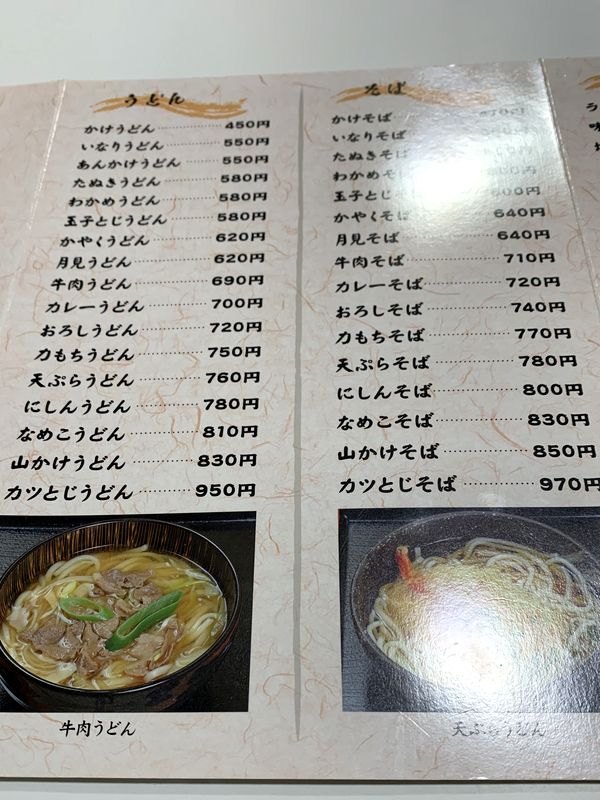 うどん
かけうどん 450円
いなりうどん 550円
あんかけうどん 550円
たぬきうどん 580円
わかめうどん 580円
玉子とじうどん 580円
かやくうどん 620円
月見うどん 620円
牛肉うどん 690円
カレーうどん 700円
おろしうどん 720円
力もちうどん 750円
天ぷらうどん 760円
にしんうどん 780円
なめこうどん 810円
山かけうどん 830円
カツとじうどん 950円
牛肉うどん
そば
かけそば
いなりそば
たぬきそば
わかめそ
玉子とじ
かやくそば 640円
月見そば 640円
牛肉そば 710円
カレーそば 720円
おろしそば 740円
力もちそば 770円
天ぷらそば 780円
にしんそば 800円
なめこそば 830円
山かけそば 850円
カツとじそば 970円
天ぷらうどん